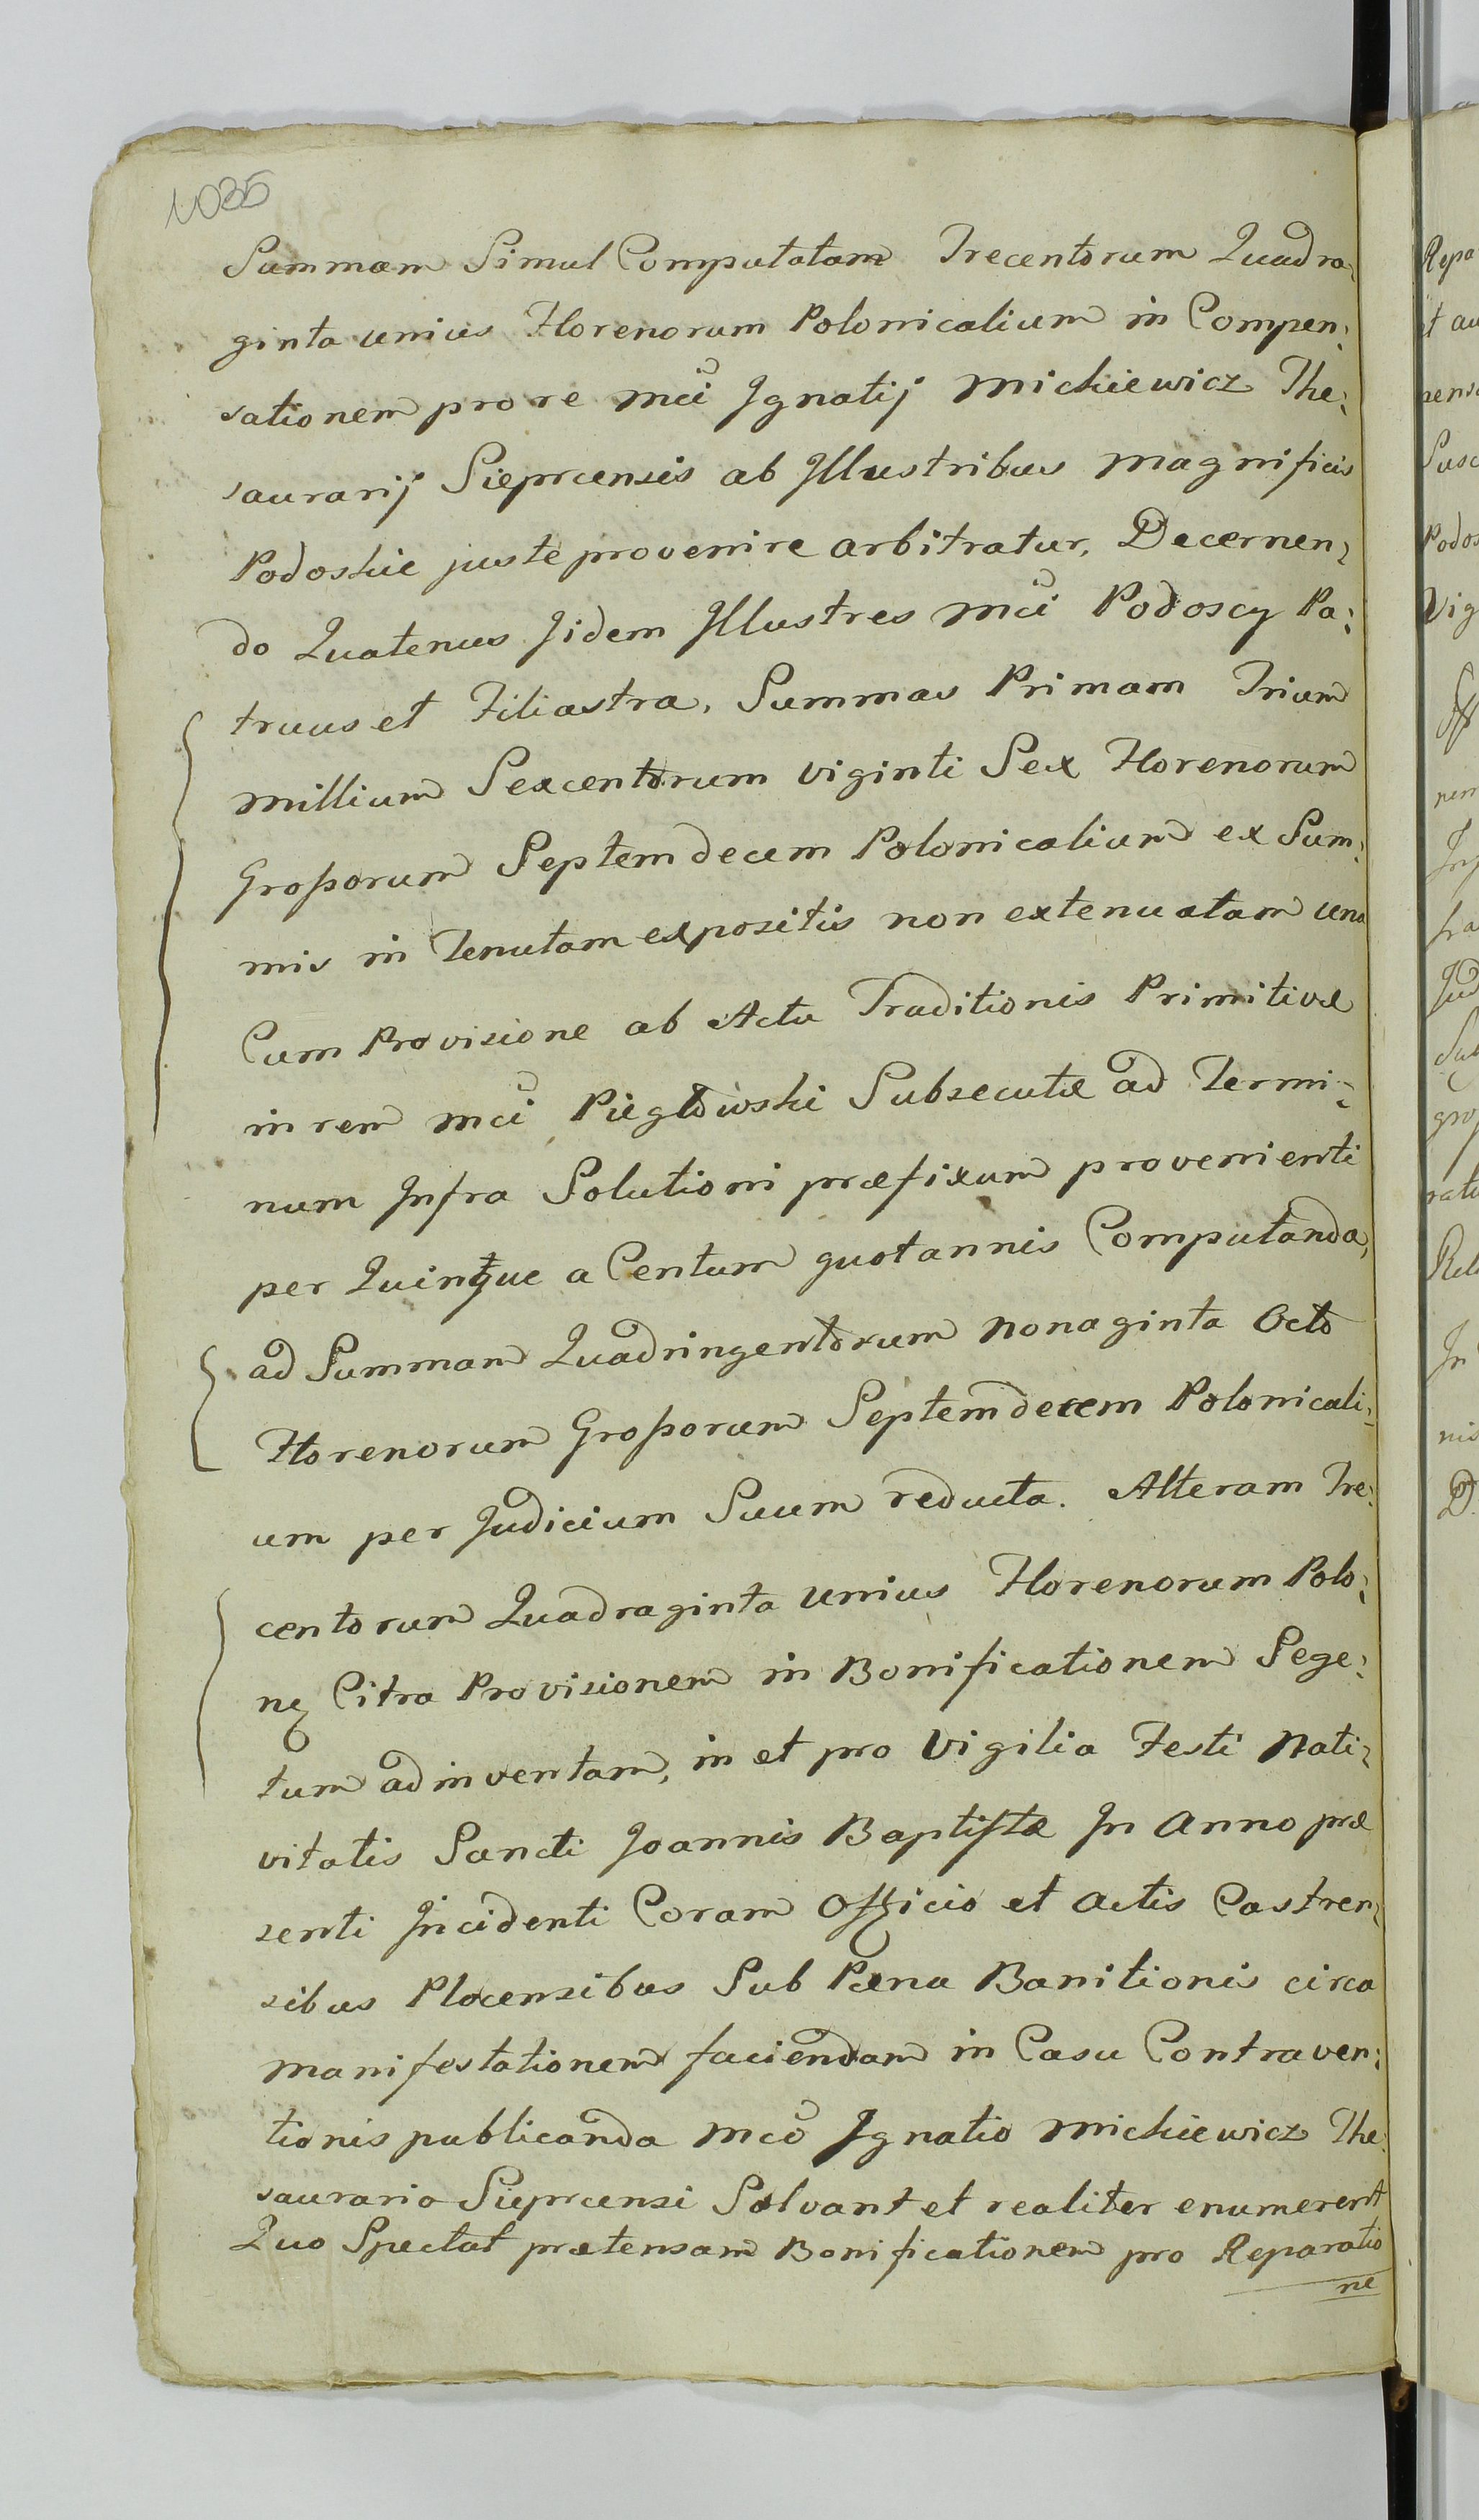 1035
Summam Simul Computatam Trecentorum Quadra-
ginta unius Florenorum Polonicalium in Compen:
sationem pro re Mci Ignatij Mickiewicz The:
saurarij Sieprcensis ab Illustribus Magnificis
Podoskie juste provenire arbitratur, Decernen,
do Quatenus Iidem Illustres Mci Podoscy Pa:
truus et Filiastra, Summas Primam Trium
Millium Sexcentorum viginti Sex Florenorum
Grossorum Septemdecem Polonicalium ex Sum:
mis in Tenutam expositis non extenuatam una
Cum Provisione ab Actu Traditionis Primitivæ
in rem Mci Piegłowski Subsecutæ ad Termi-
num Infra Solutioni præfixum provenienti
per Quinque a Centum quotannis Computanda,
ad Summam Quadringentorum Nonaginta Octo
Florenorum Grossorum Septemdecem Polonicali-
um per Judicium Suum reducta. Alteram Tre:
centorum Quadraginta unius Florenorum Polo:
nẹ Citra Provisionem in Bonificationem Sege:
tum adinventam, in et pro Vigilia Festi Nati,
vitatis Sancti Joannis Baptistæ In Anno præ
senti Incidenti Coram Officio et Actis Castren,
sibus Plocensibus Sub Pæna Banitionis circa
manifestationem faciendam in Casu Contraven:
tionis publicanda Mco Ignatio Mickiewicz The:
saurario Sieprcensi Solvant et realiter enumerent
Quo Spectat prætensam Bonificationem pro Reparatio
ne
Repa
et au
pens
Susc
Podos
Vig
nem
fra
Jud
Sub
gros
ratu
Rel
In
nis
D